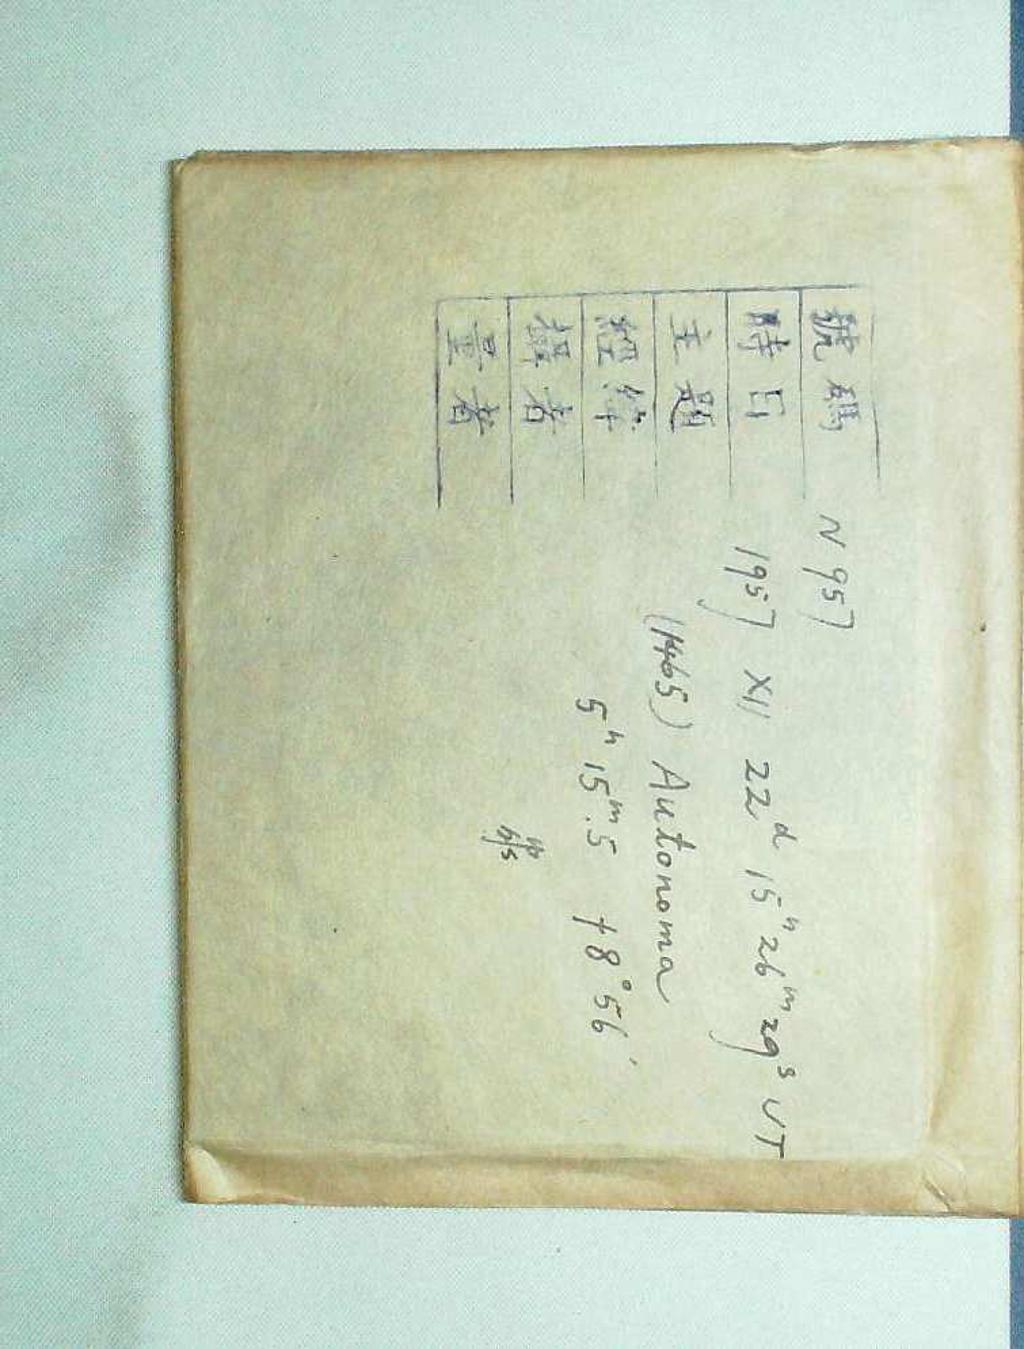 號碼 N 957
時日 1957 XII 22ᵈ 15ʰ 26ᵐ 29ˢ UT
主題 (1465) Autonoma
經緯 5ʰ 15ᵐ.5 +8°56′
攝者
量者